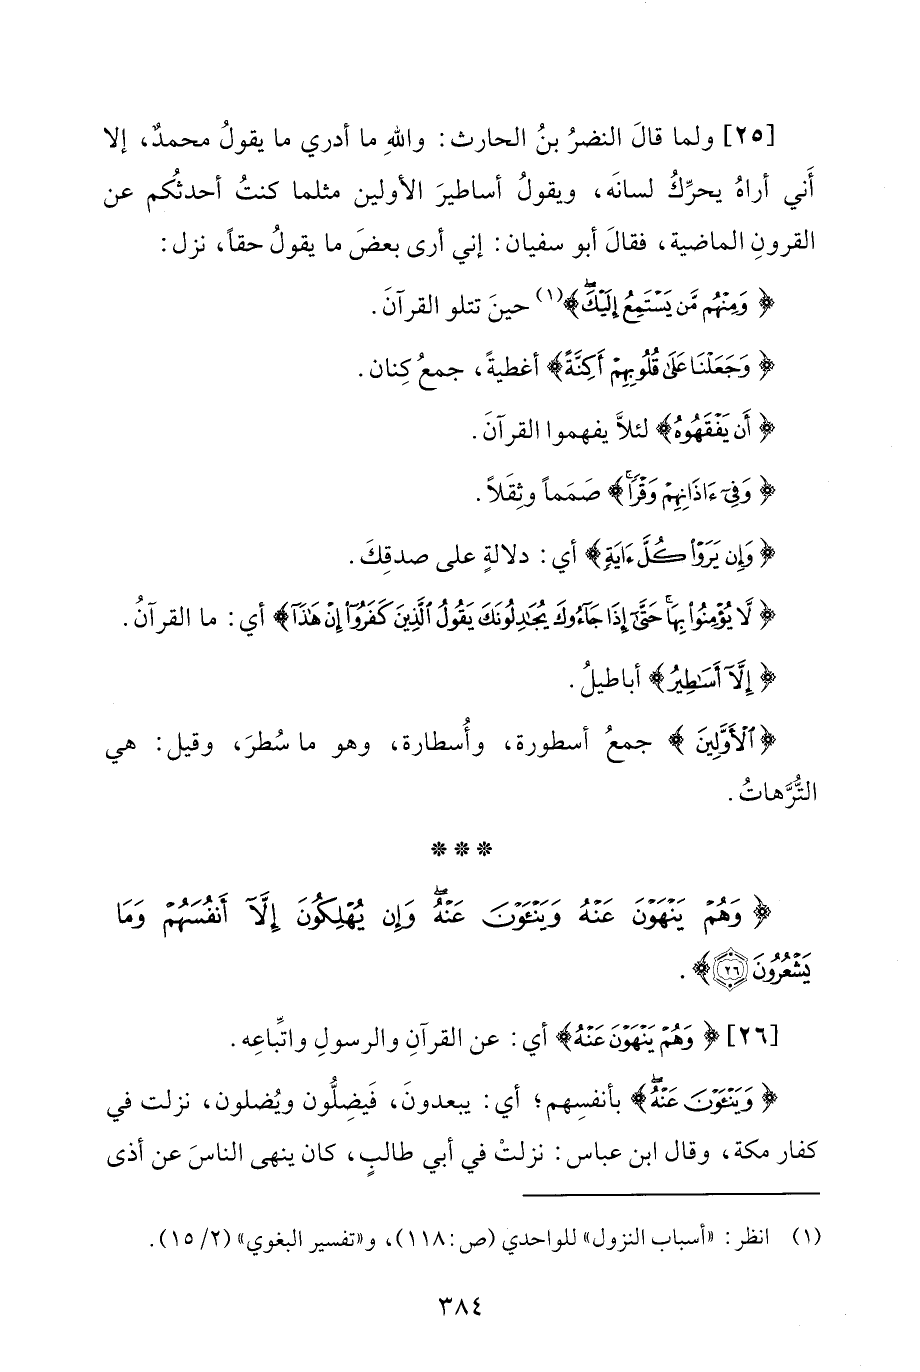 [٢٥] ولما قالَ النضرُ بنُ الحارث: واللهِ ما أدري ما يقولُ محمدٌ، إلا
أَني أراهُ يحرِّكُ لسانَه، ويقولُ أساطيرَ الأولين مثلما كنتُ أحدثُكم عن
القرونِ الماضية، فقالَ أبو سفيان: إني أرى بعضَ ما يقولُ حقاً، نزل:
﴿وَمِنْهُم مَّن يَسْتَمِعُ إِلَيْكَۖ﴾(١) حينَ تتلو القرآنَ.
﴿وَجَعَلْنَا عَلَىٰ قُلُوبِهِمْ أَكِنَّةً﴾ أغطيةً، جمعُ كِنان.
﴿أَن يَفْقَهُوهُ﴾ لئلاَّ يفهموا القرآنَ.
﴿وَفِيٓ ءَاذَانِهِمْ وَقْرًاۚ﴾ صَمَماً وثِقَلاً.
﴿وَإِن يَرَوْا۟ كُلَّ ءَايَةٍ﴾ أي: دلالةٍ على صدقِكَ.
﴿لَّا يُؤْمِنُوا۟ بِهَاۚ حَتَّىٰٓ إِذَا جَآءُوكَ يُجَٰدِلُونَكَ يَقُولُ ٱلَّذِينَ كَفَرُوٓا۟ إِنْ هَٰذَآ﴾ أي: ما القرآنُ.
﴿إِلَّآ أَسَٰطِيرُ﴾ أباطيلُ.
﴿ٱلْأَوَّلِينَ﴾ جمعُ أسطورة، وأُسطارة، وهو ما سُطرَ، وقيل: هي
التُّرَّهاتُ.
***
﴿وَهُمْ يَنْهَوْنَ عَنْهُ وَيَنْـَٔوْنَ عَنْهُۖ وَإِن يُهْلِكُونَ إِلَّآ أَنفُسَهُمْ وَمَا
يَشْعُرُونَ ٢٦﴾.
[٢٦] ﴿وَهُمْ يَنْهَوْنَ عَنْهُ﴾ أي: عن القرآنِ والرسولِ واتِّباعِه.
﴿وَيَنْـَٔوْنَ عَنْهُۖ﴾ بأنفسِهم؛ أي: يبعدونَ، فَيضِلُّون ويُضلون، نزلت في
كفار مكة، وقال ابن عباس: نزلتْ في أبي طالبٍ، كان ينهى الناسَ عن أذى
(١) انظر: «أسباب النزول» للواحدي (ص: ١١٨)، و«تفسير البغوي» (٢/ ١٥).
٣٨٤